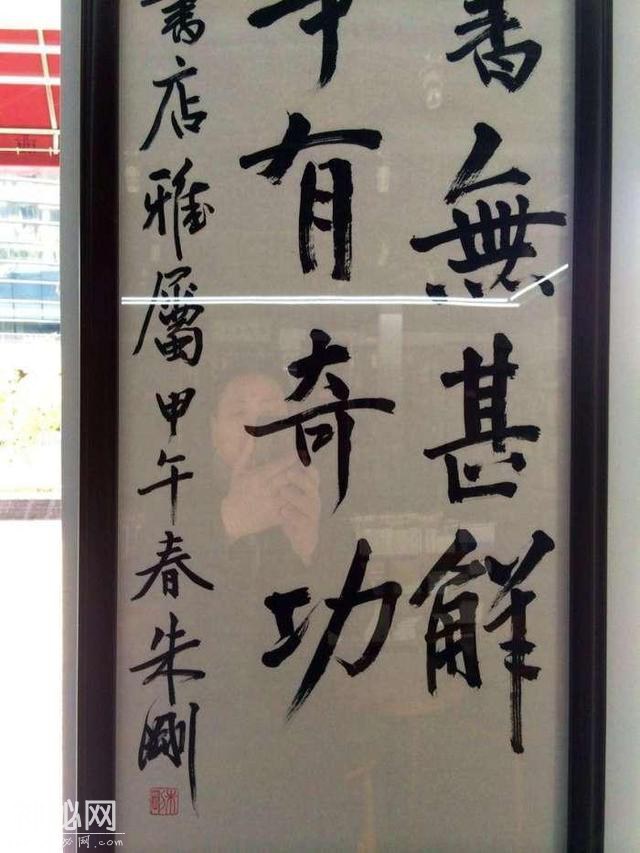 書無甚解
有奇功
書店雅屬甲午春朱剛
秘网
网.com